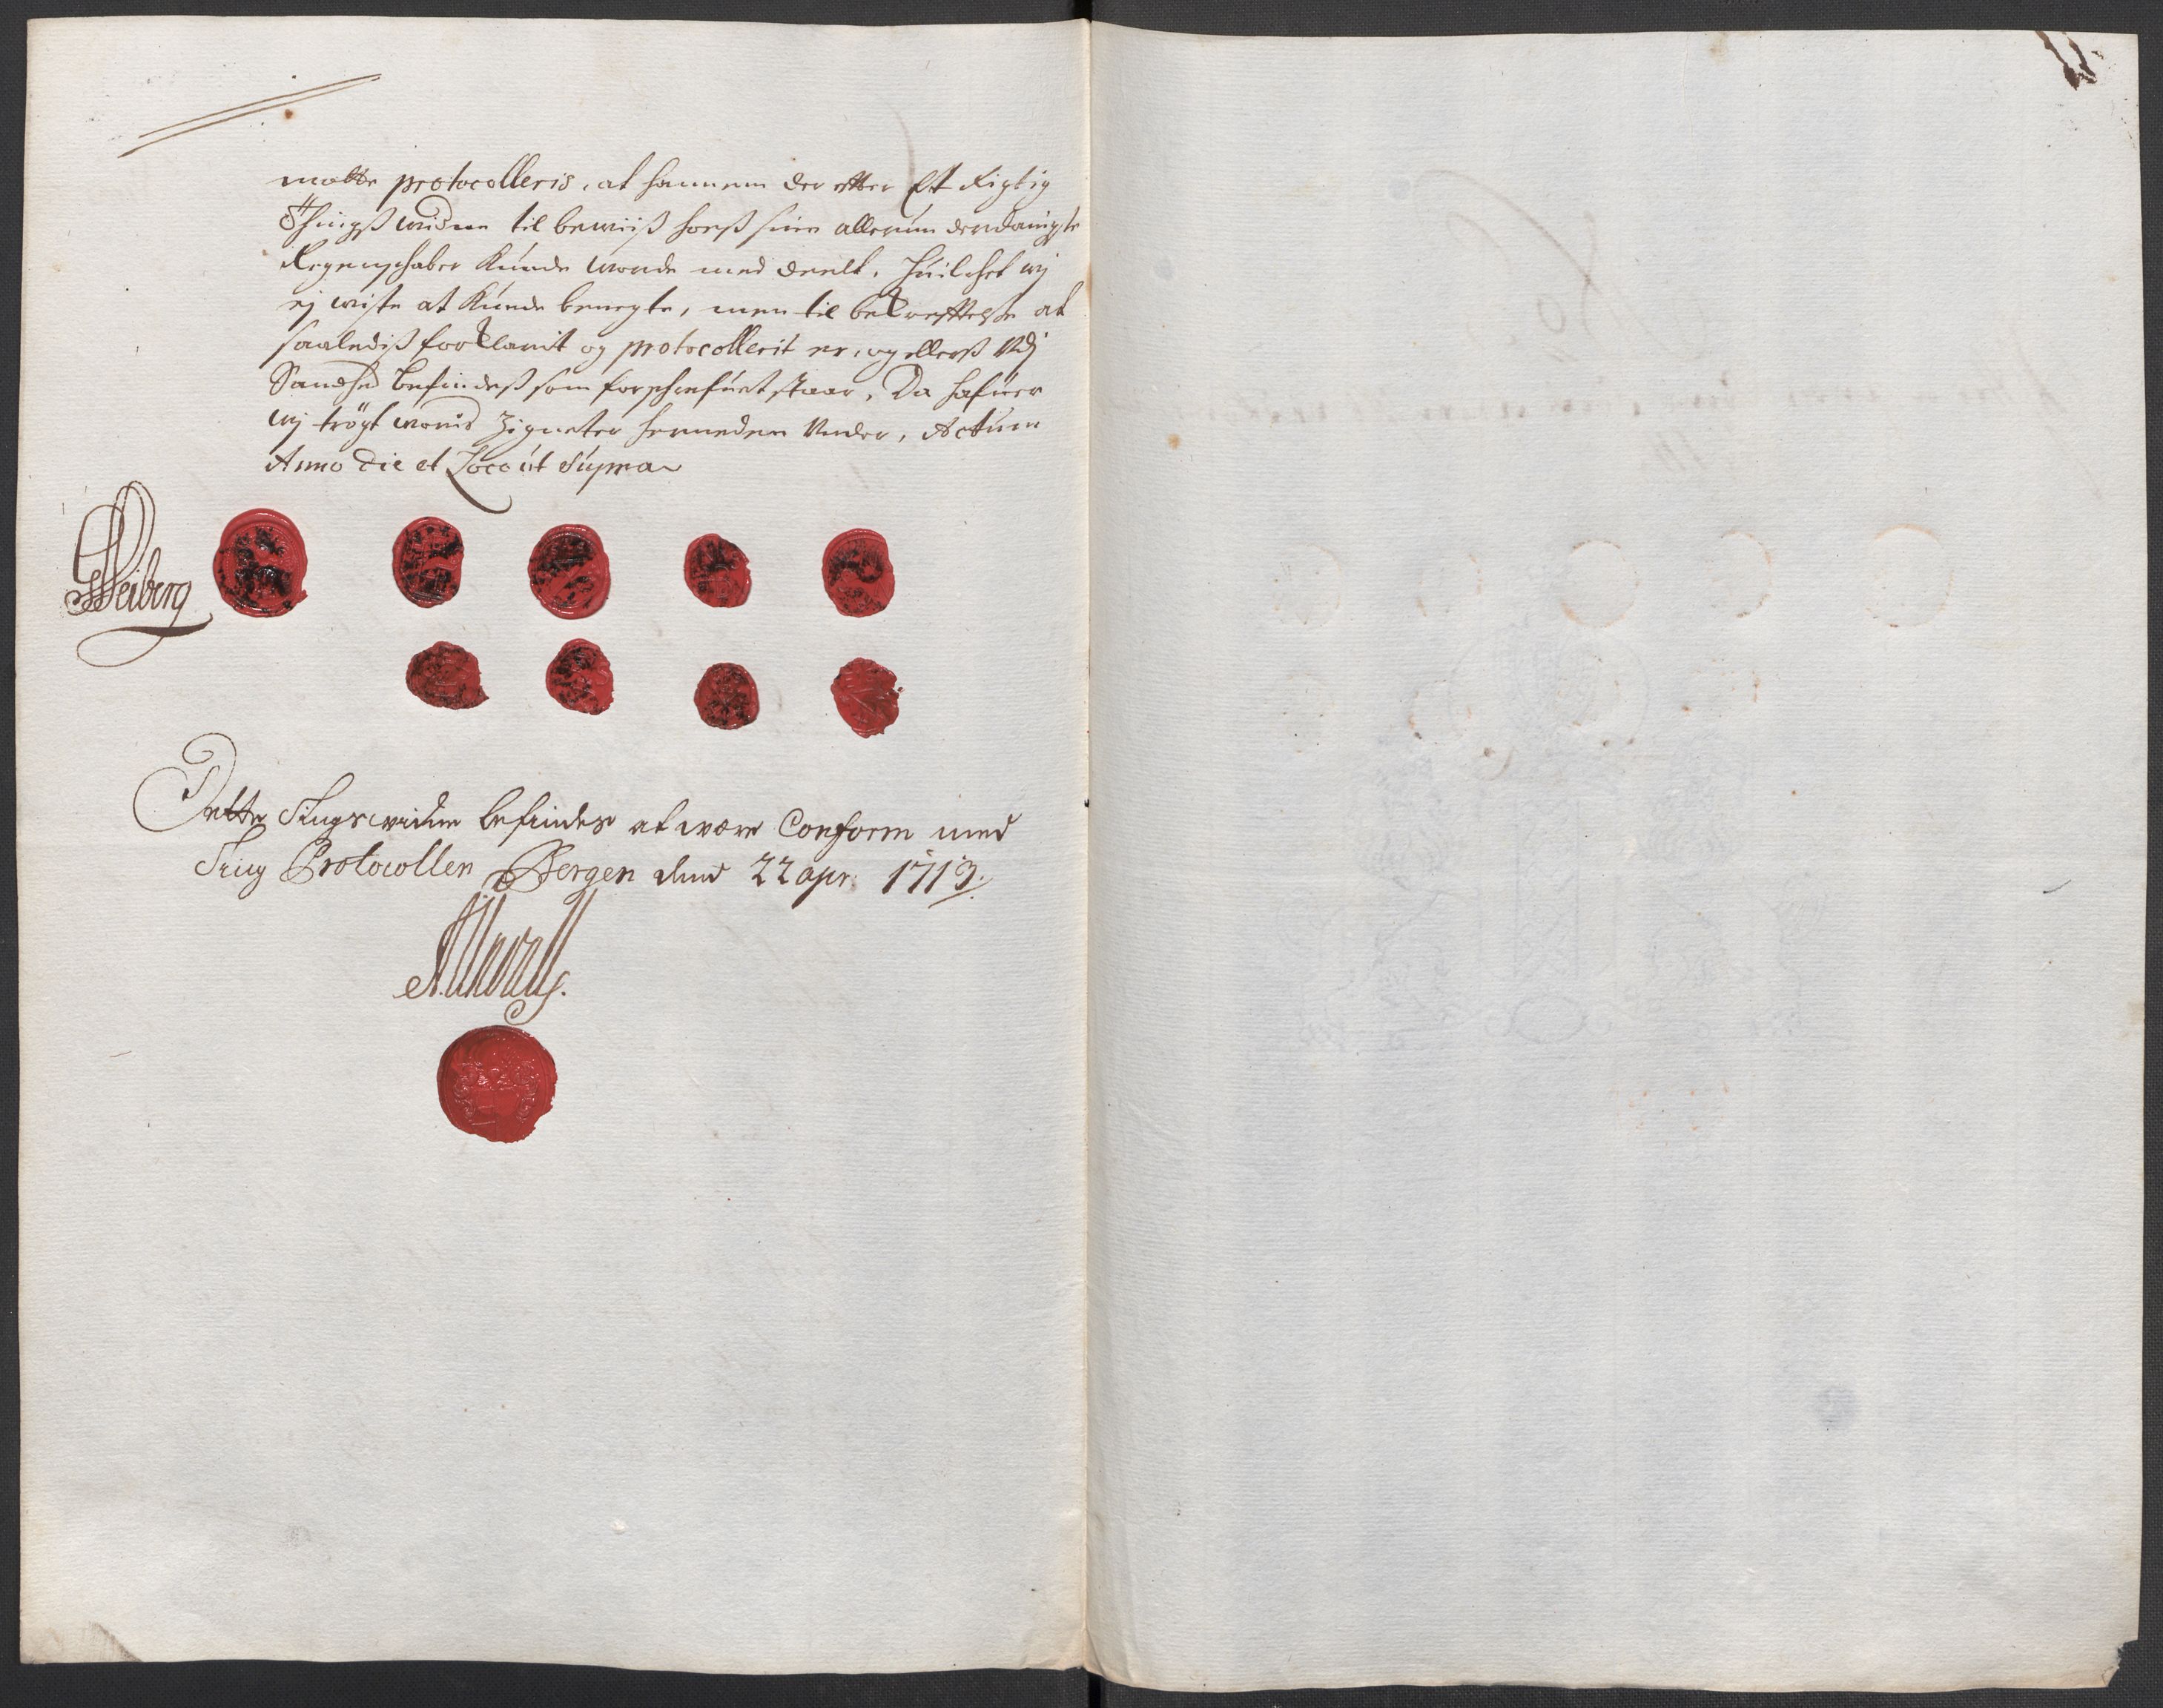 motte protocolleris, at hannem der etter Et Rigtig
Thingß widne til bewiiß hoeß sine allerunderdanigste
Regenschaber Kunde worde med deelt, huilchet wj
ej wiste at Kunde benegte, men til bekrefftelse at
saalediß forklarit og protocollerit er, og ellerß Udj
Sandhed befindeß som forschrefuet staar, Da hafuer
wj trögt woris Zigneter herneden Under, Actum
Anno Die et Loco ut Supra
Dette Tingswidne befindes at være Conform med
Ting Protocollen Bergen dend 22 apr: 1713.